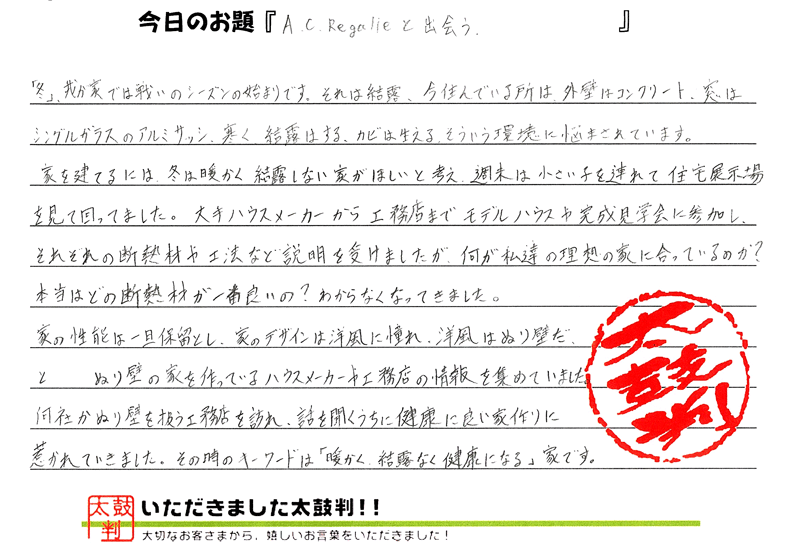 今日のお題『A.C.Regalieと出会う.』
「冬」、我が家では戦いのシーズンの始まりです。それは結露、今住んでいる所は、外壁はコンクリート、窓は
シングルガラスのアルミサッシ、寒く、結露はする、カビは生える、そういう環境に悩まされています。
家を建てるには、冬は暖かく、結露しない家がほしいと考え、週末は小さい子を連れて住宅展示場
を見て回ってました。大手ハウスメーカーから工務店までモデルハウスや完成見学会に参加し、
それぞれの断熱材や工法など説明を受けましたが、何が私達の理想の家に合っているのか?
本当はどの断熱材が一番良いの?わからなくなってきました。
家の性能は一旦保留とし、家のデザインは洋風に憧れ、洋風はぬり壁だ、
と ぬり壁の家を作っているハウスメーカーや工務店の情報を集めていました。
何社かぬり壁を扱う工務店を訪れ、話を聞くうちに健康に良い家作りに
惹かれていきました。その時のキーワードは「暖かく、結露なく健康になる」家です。
太鼓判
太鼓判
いただきました太鼓判!!
大切なお客さまから、嬉しいお言葉をいただきました!